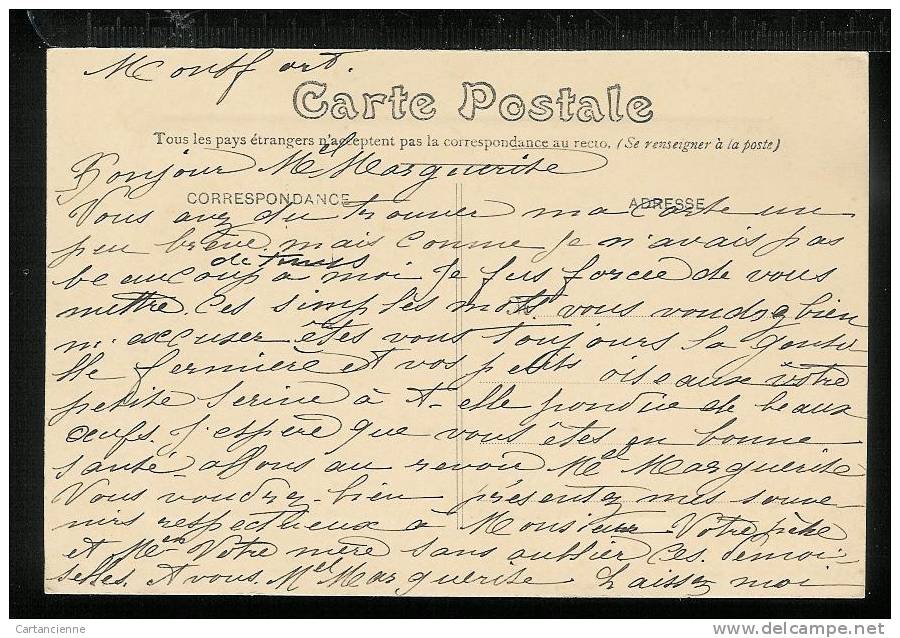 Montfort.
Carte Postale
Tous les pays étrangers n'acceptent pas la correspondance au recto. (Se renseigner à la poste)
Bonjour Melle Marguerite
CORRESPONDANCE
ADRESSE
Vous avez du trouver ma carte un
peu brève mais comme je n'avais pas
beaucoup de temps à moi je fus forcée de vous
mettre ces simples mots vous voudrez bien
m'excuser êtes vous toujours la genti
lle fermière et vos petits oiseaux vôtre
petite serine à t-elle pondue de beaux
œufs. j'espère que vous êtes en bonne
santé allons au revoir Melle Marguerite
Vous voudrez-bien présentez mes souve
nirs respectueux à Monsieur Votre père
et Me Votre mère sans oublier ces demoi-
selles. A vous. Melle Marguerite Laissez moi
Cartancienne
www.delcampe.net